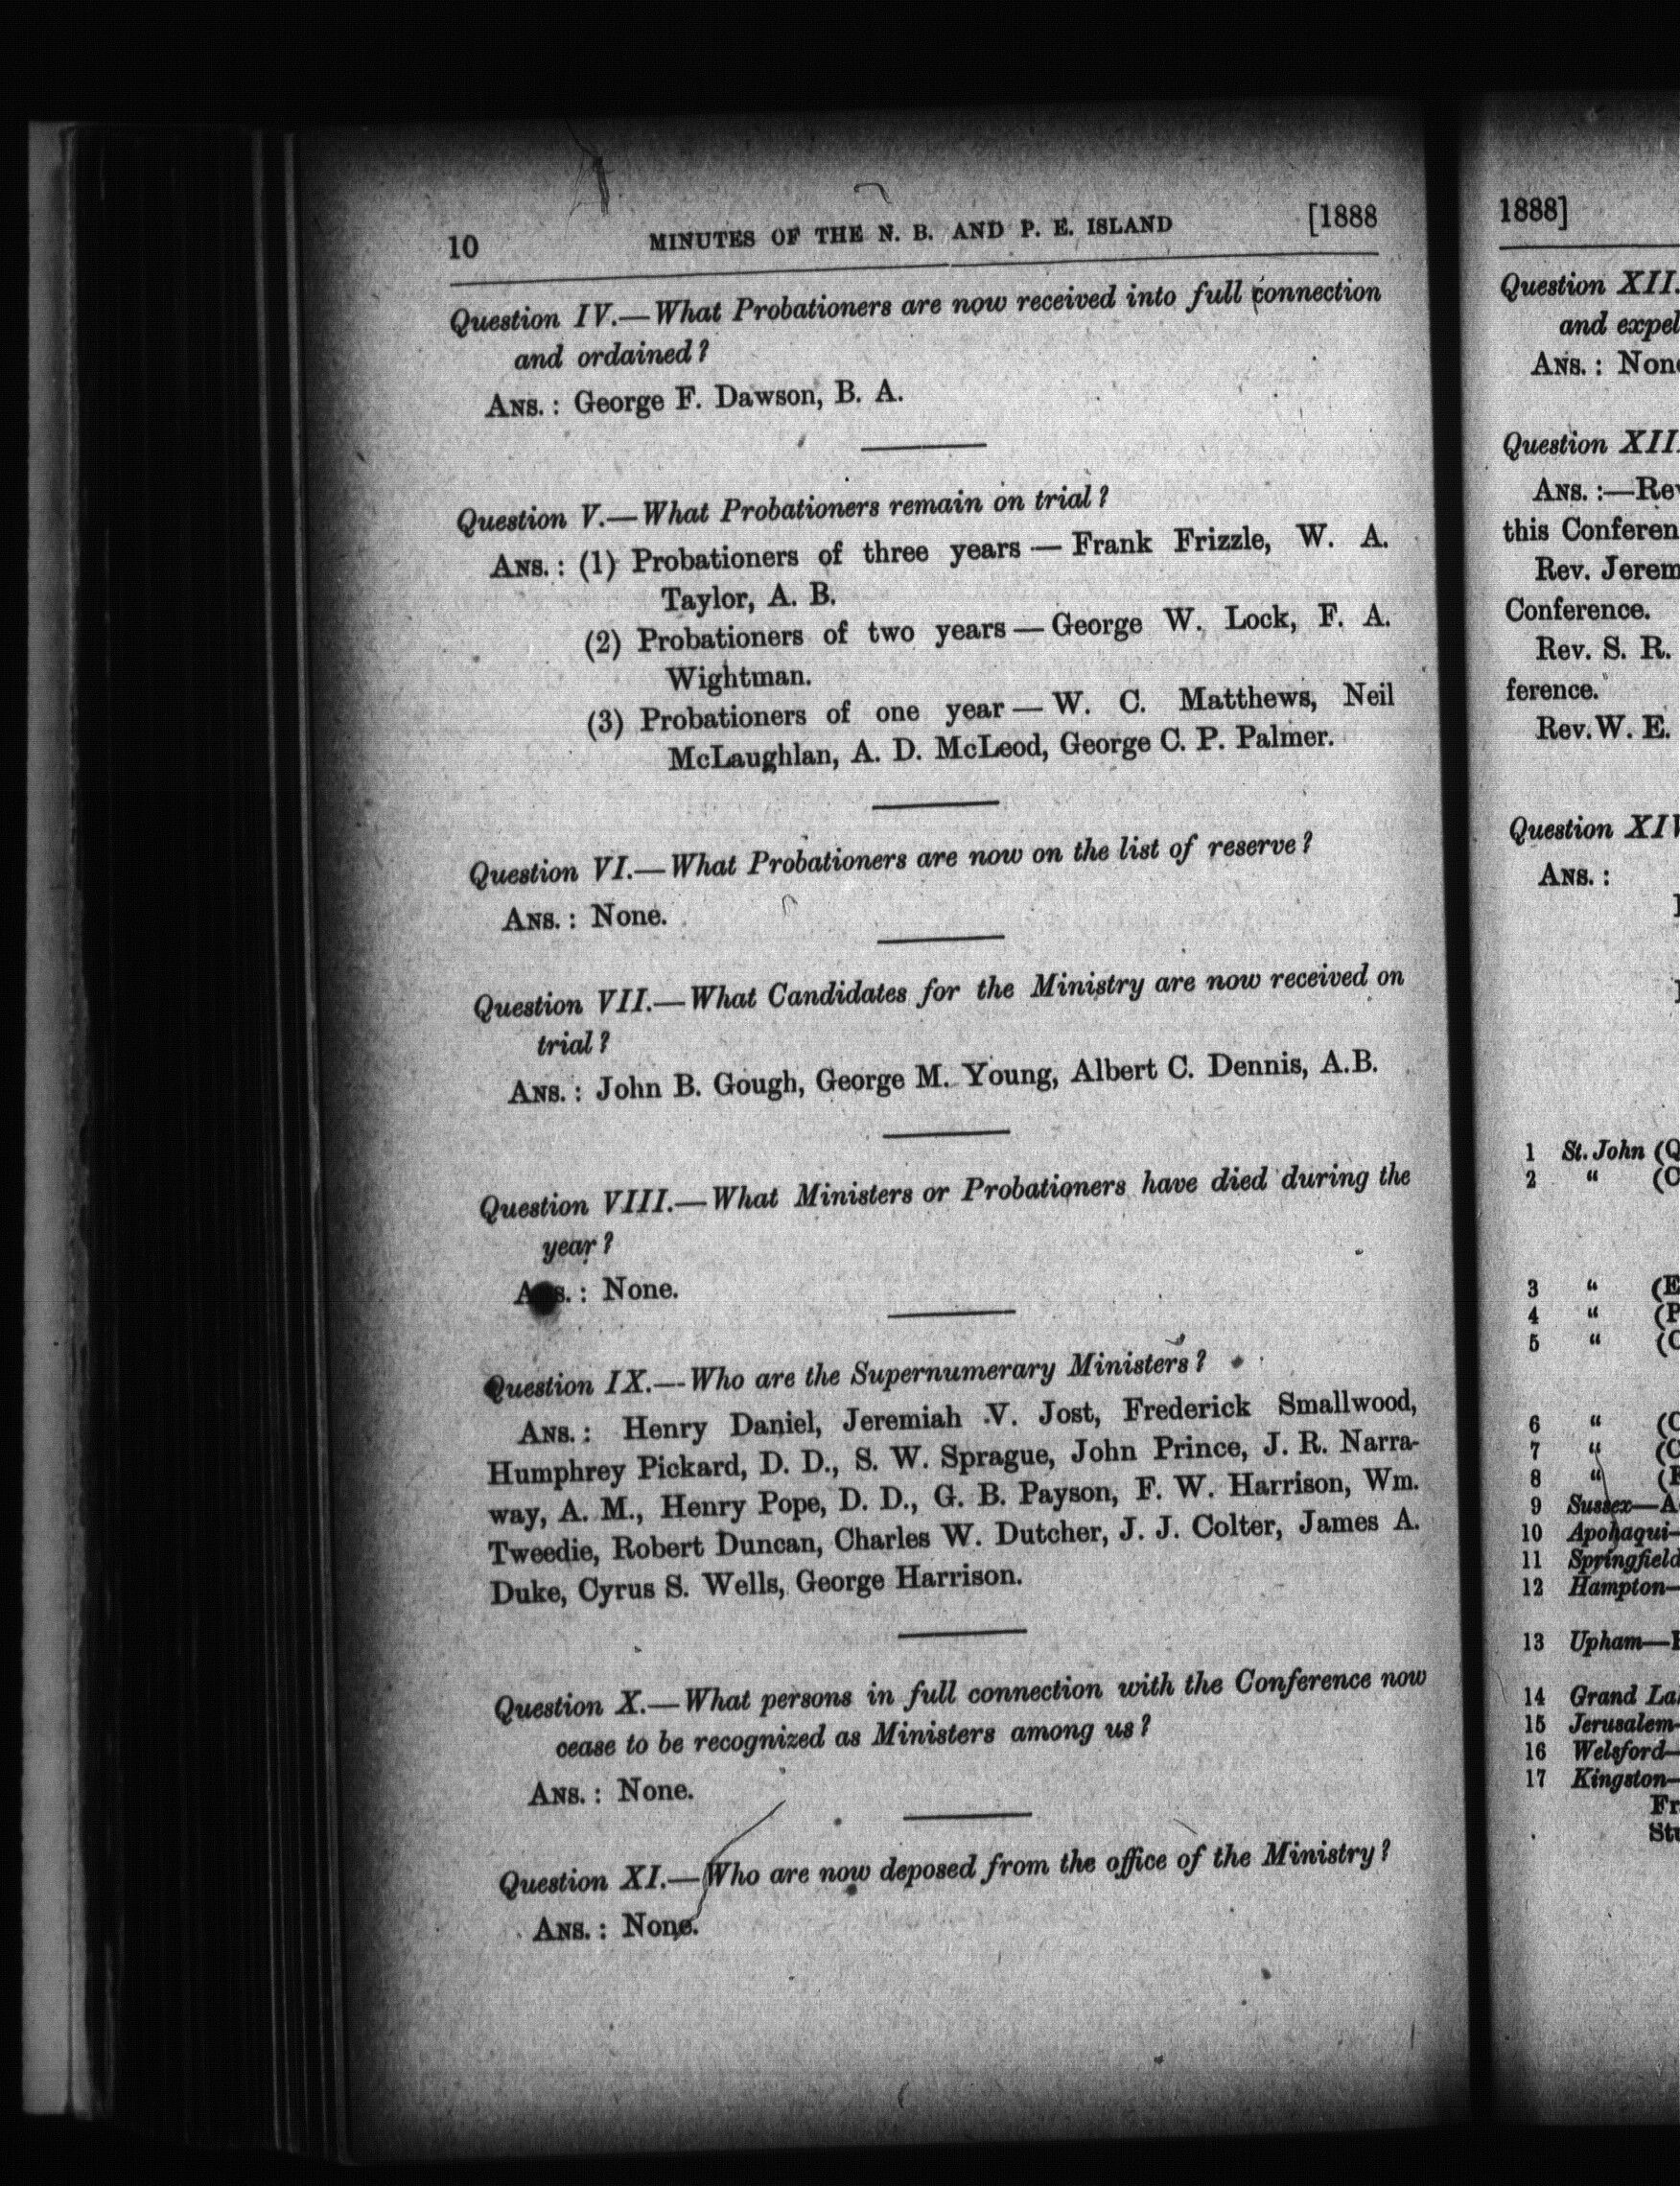 10 MINUTES OF THE N. B. AND P. E. ISLAND [1888
Question IV.—What Probationers are now received into full connection
and ordained?
ANS.: George F. Dawson, B. A.
Question V.—What Probationers remain on trial?
ANS.: (1) Probationers of three years — Frank Frizzle, W. A.
Taylor, A. B.
(2) Probationers of two years — George W. Lock, F. A.
Wightman.
(3) Probationers of one year — W. C. Matthews, Neil
McLaughlan, A. D. McLeod, George C. P. Palmer.
Question VI.—What Probationers are now on the list of reserve?
ANS.: None.
Question VII.—What Candidates for the Ministry are now received on
trial?
ANS.: John B. Gough, George M. Young, Albert C. Dennis, A.B.
Question VIII.—What Ministers or Probationers have died during the
year?
ANS.: None.
Question IX.—Who are the Supernumerary Ministers?
ANS.: Henry Daniel, Jeremiah V. Jost, Frederick Smallwood,
Humphrey Pickard, D. D., S. W. Sprague, John Prince, J. R. Narra-
way, A. M., Henry Pope, D. D., G. B. Payson, F. W. Harrison, Wm.
Tweedie, Robert Duncan, Charles W. Dutcher, J. J. Colter, James A.
Duke, Cyrus S. Wells, George Harrison.
Question X.—What persons in full connection with the Conference now
cease to be recognized as Ministers among us?
ANS.: None.
Question XI.—Who are now deposed from the office of the Ministry?
ANS.: None.
1888]
Question XII.
and expel
ANS.: None
Question XII
ANS.:—Rev
this Conferen
Rev. Jerem
Conference.
Rev. S. R.
ference.
Rev. W. E.
Question XIV
ANS.:
1 St. John (Q
2 " (C
3 " (E
4 " (P
5 " (C
6 " (C
7 " (C
8 "
9 Sussex—A
10 Apohaqui—
11 Springfield
12 Hampton—
13 Upham—
14 Grand La
15 Jerusalem—
16 Welsford—
17 Kingston—
Fr
Stu